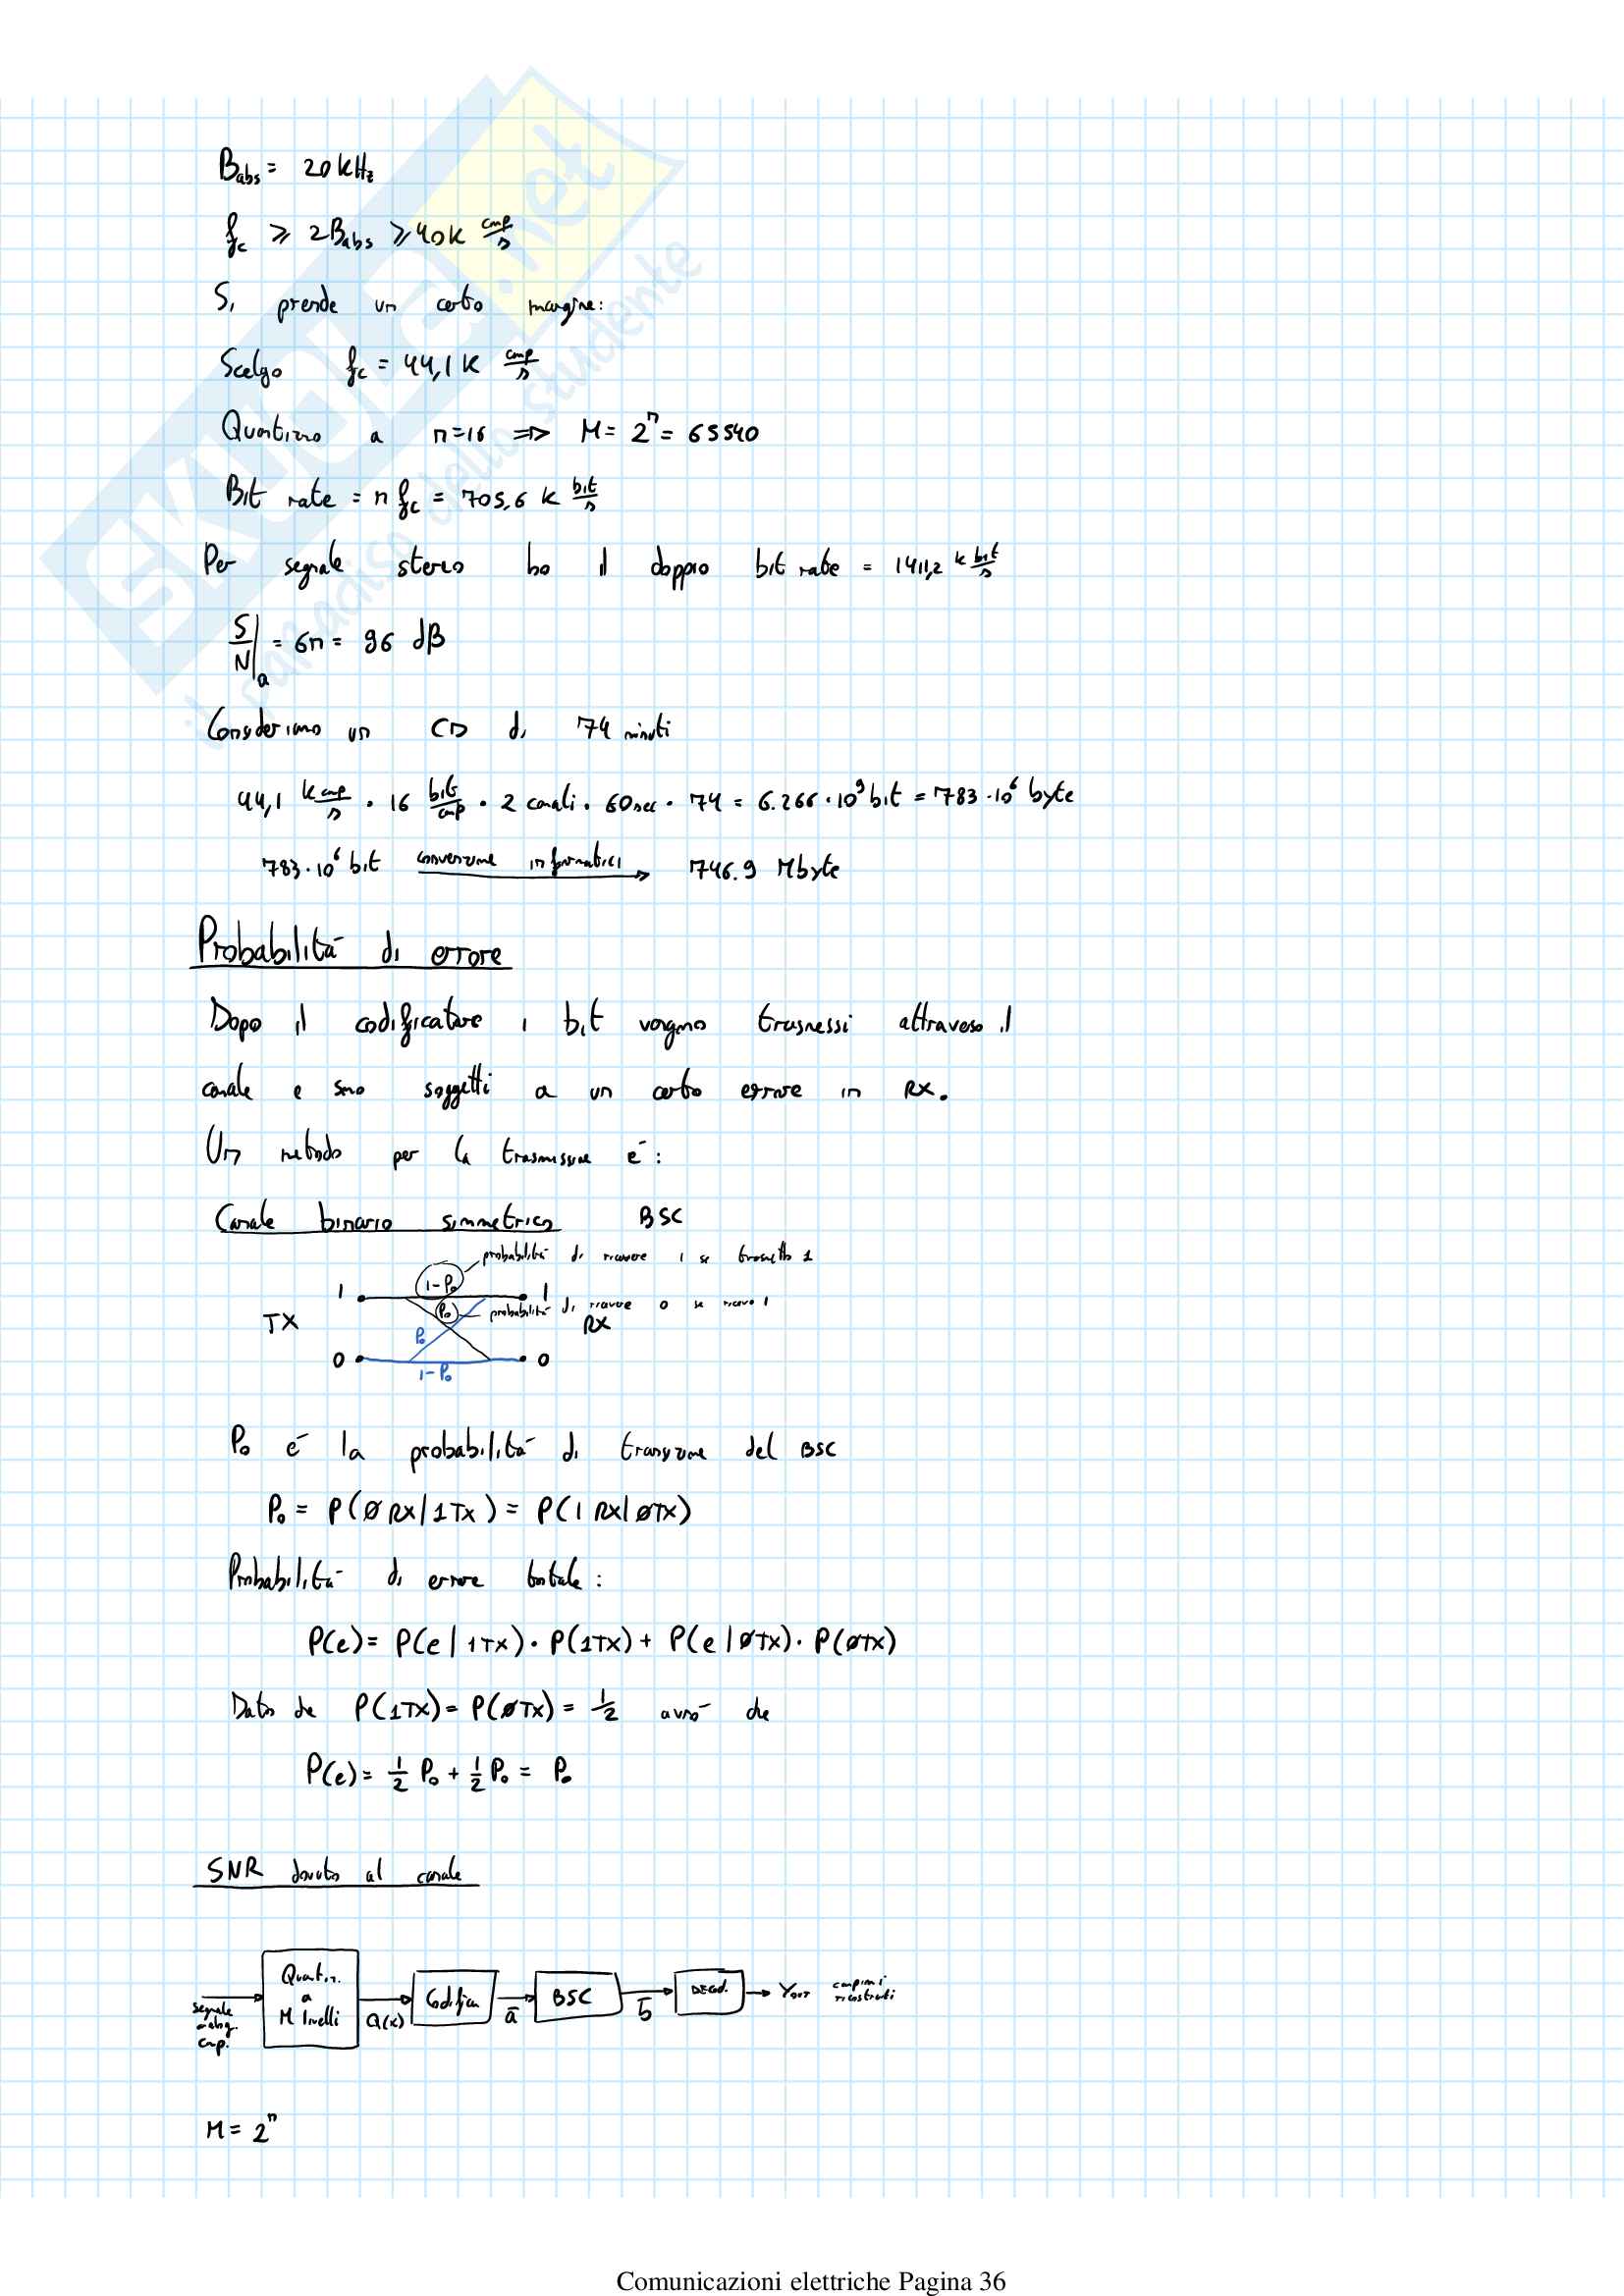 B_abs = 20 kHz
f_c ⩾ 2B_abs ⩾ 40 k cmp/s
Si prende un certo margine:
Scelgo f_c = 44,1 k cmp/s
Quantizzo a n=16 => M = 2^n = 65540
Bit rate = n f_c = 705,6 k bit/s
Per segnale stereo ho il doppio bit rate = 1411,2 k bit/s
S/N|_Q = 6n = 96 dB
Consideriamo un CD di 74 minuti
44,1 k cmp/s · 16 bit/cmp · 2 canali · 60 sec · 74 = 6.266 · 10^9 bit = 783 · 10^6 byte
783 · 10^6 bit conversione informatici → 746.9 Mbyte
Probabilità di errore
Dopo il codificatore i bit vengono trasmessi attraverso il
canale e sono soggetti a un certo errore in RX.
Un metodo per la trasmissione è:
Canale binario simmetrico BSC
probabilità di ricevere 1 se trasmetto 1
1 1-P_0 1
P_0 probabilità di ricevere 0 se ricevo 1
TX P_0 RX
0 0
1-P_0
P_0 è la probabilità di transizione del BSC
P_0 = P(0 RX | 1 TX) = P(1 RX | 0 TX)
Probabilità di errore totale:
P(e) = P(e | 1 TX) · P(1 TX) + P(e | 0 TX) · P(0 TX)
Dato che P(1 TX) = P(0 TX) = 1/2 avrò che
P(e) = 1/2 P_0 + 1/2 P_0 = P_0
SNR dovuto al canale
segnale analog. cmp.
Quantiz. a M livelli
Q(x)
Codifica
a̅
BSC
b̅
DECOD.
Y_OUT campioni ricostruiti
M = 2^n
Comunicazioni elettriche Pagina 36
SKUOLA.net
il paradiso dello studente